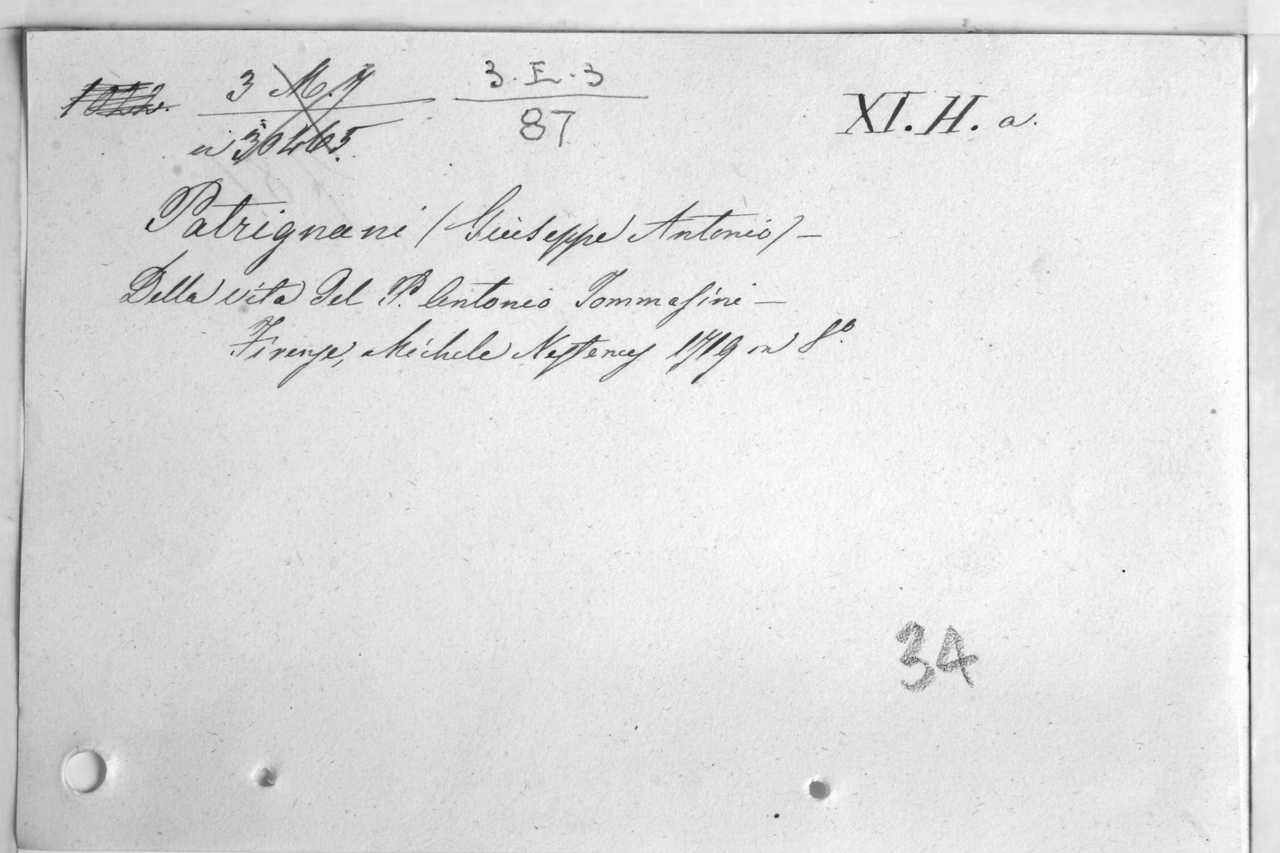 3 M. 7
3. E. 3
87
XI. H. a.
Patrignani (Giuseppe Antonio) —
Della vita del P. Antonio Tommasini —
Firenze, Michele Nestenus 1719 in 8.º
34